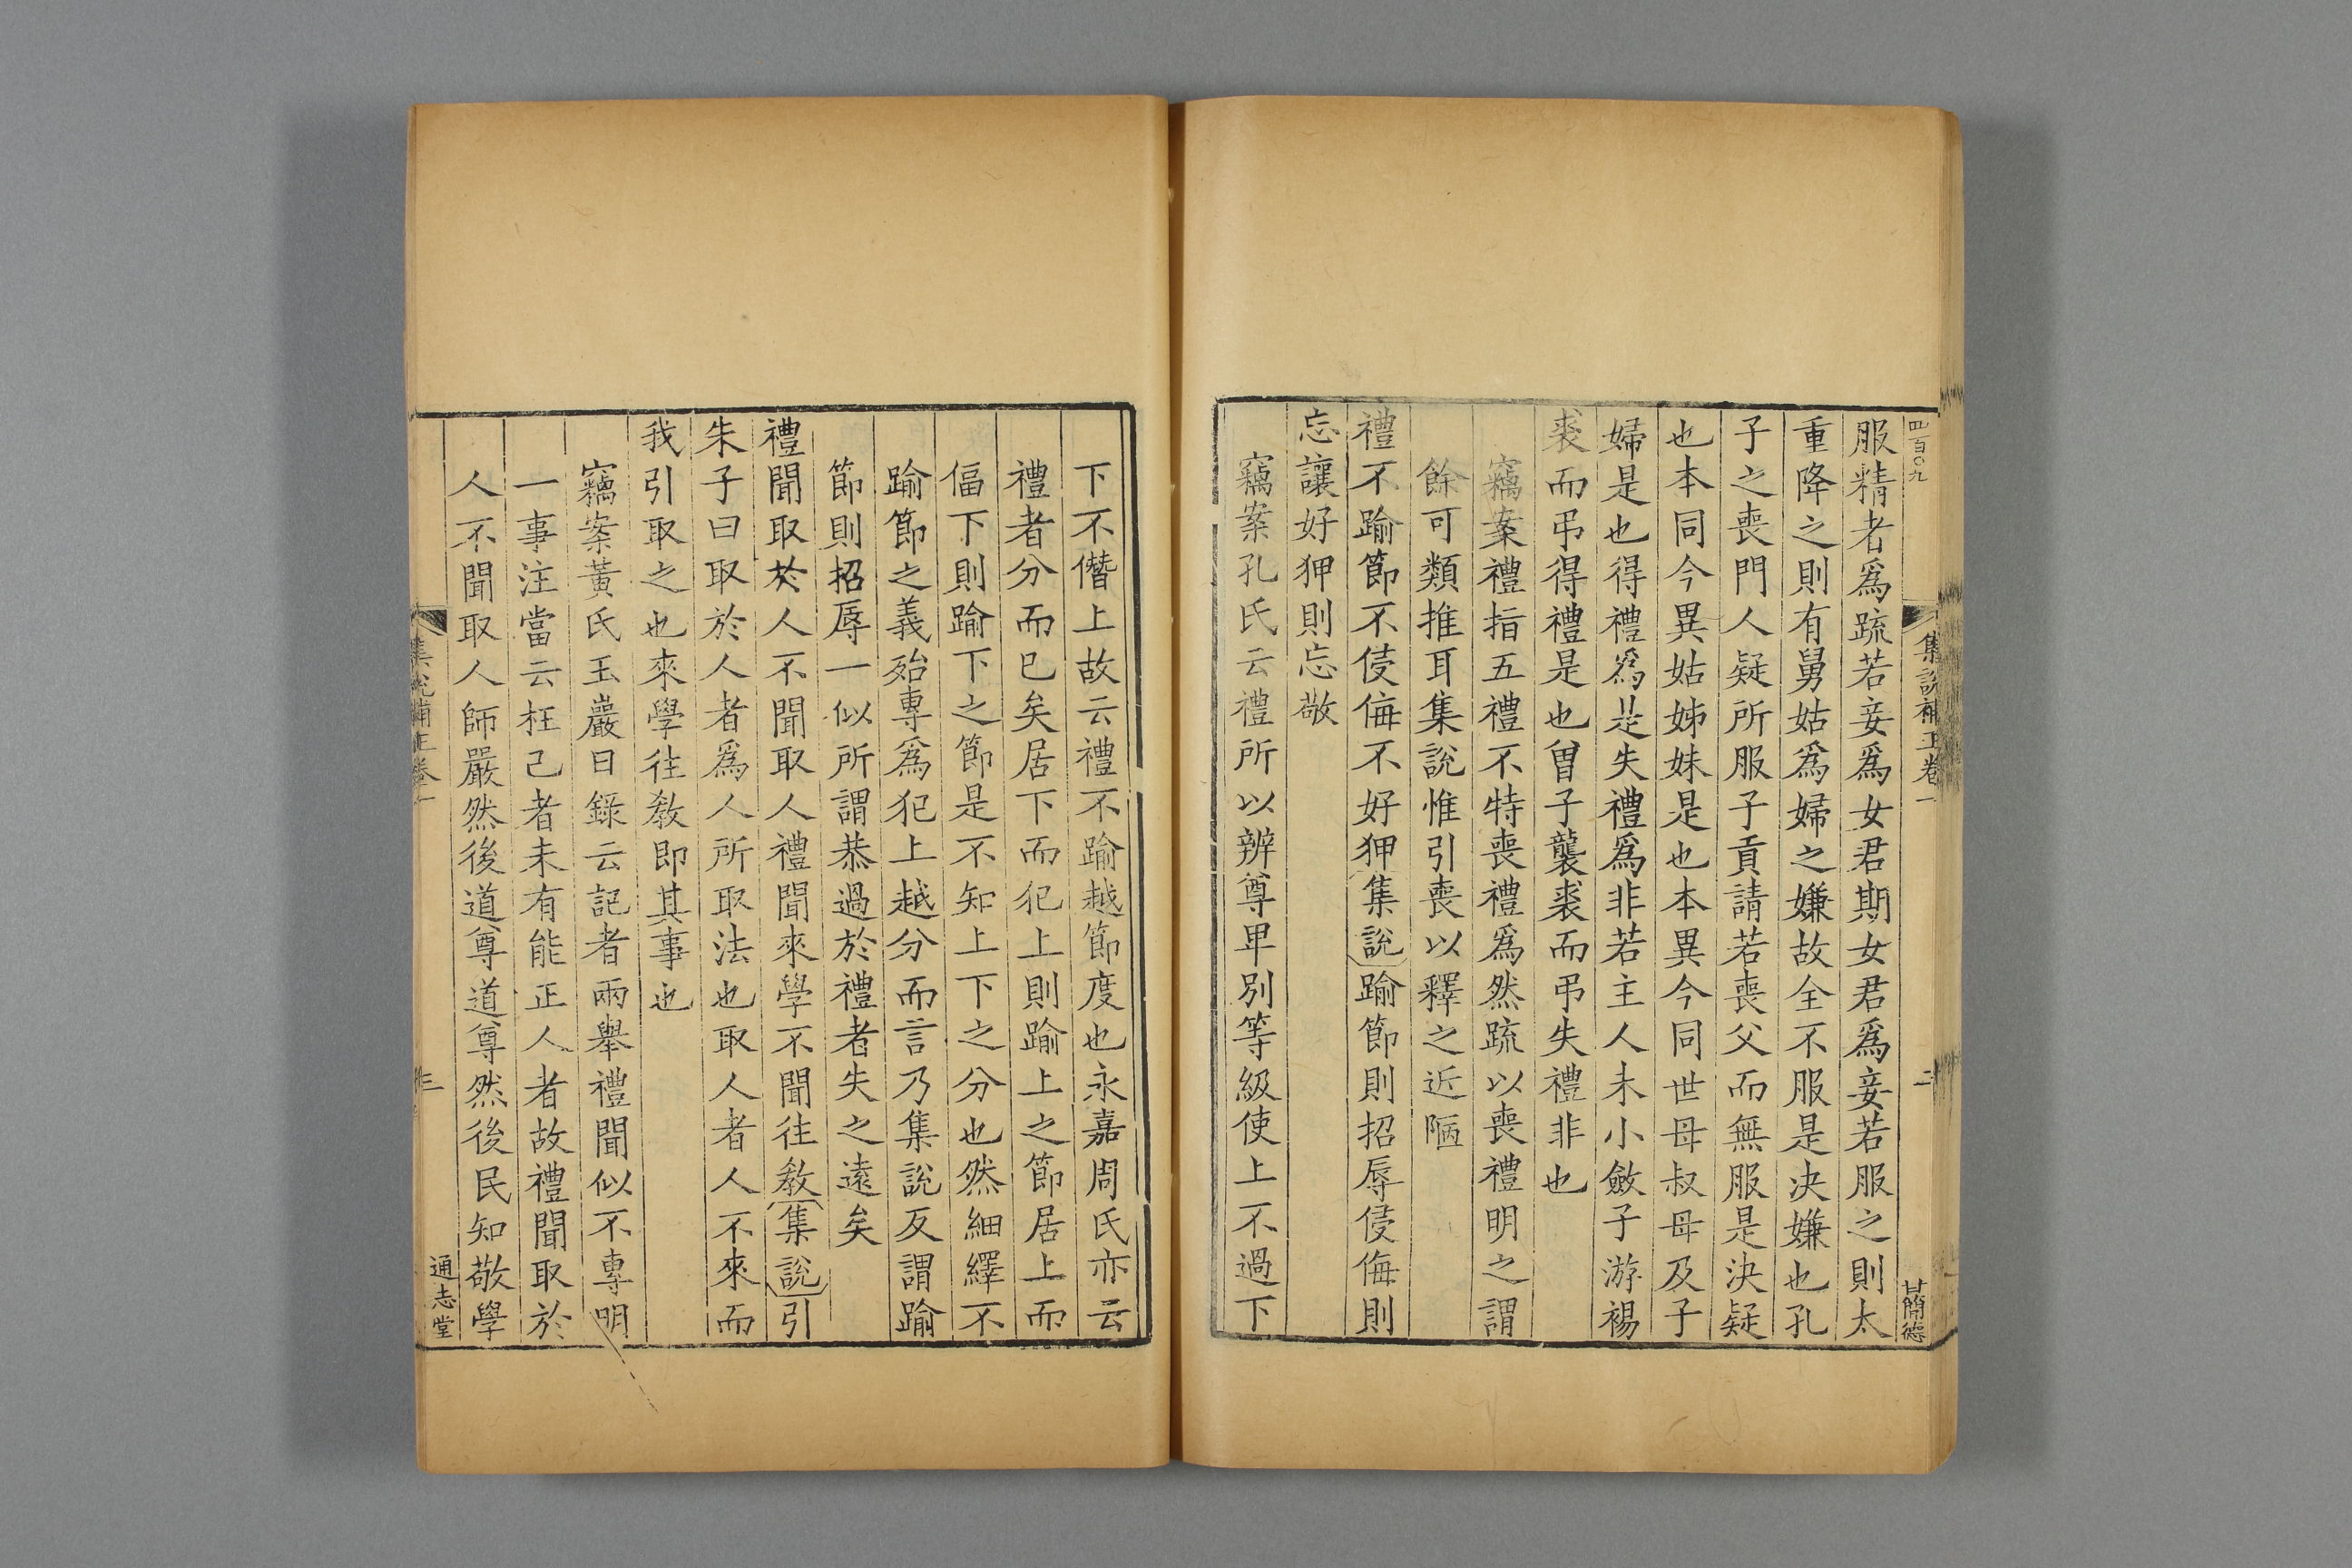 四百〇九
集説補正卷一
二
甘簡德
服精者爲疏若妾爲女君期女君爲妾若服之則太
重降之則有舅姑爲婦之嫌故全不服是决嫌也孔
子之喪門人疑所服子貢請若喪父而無服是決疑
也本同今異姑姊妹是也本異今同世母叔母及子
婦是也得禮爲是失禮爲非若主人未小斂子游裼
裘而弔得禮是也曾子襲裘而弔失禮非也
竊案禮指五禮不特喪禮爲然疏以喪禮明之謂
餘可類推耳集說惟引喪以釋之近陋
禮不踰節不侵侮不好狎集說踰節則招辱侵侮則
忘讓好狎則忘敬
竊案孔氏云禮所以辨尊卑別等級使上不過下
下不僭上故云禮不踰越節度也永嘉周氏亦云
禮者分而已矣居下而犯上則踰上之節居上而
偪下則踰下之節是不知上下之分也然細繹不
踰節之義殆專爲犯上越分而言乃集說反謂踰
節則招辱一似所謂恭過於禮者失之遠矣
禮聞取於人不聞取人禮聞來學不聞往敎集說引
朱子曰取於人者爲人所取法也取人者人不來而
我引取之也來學往敎即其事也
竊案黃氏玉巖日錄云記者兩舉禮聞似不專明
一事注當云枉己者未有能正人者故禮聞取於
人不聞取人師嚴然後道尊道尊然後民知敬學
集說補正卷一
三
通志堂